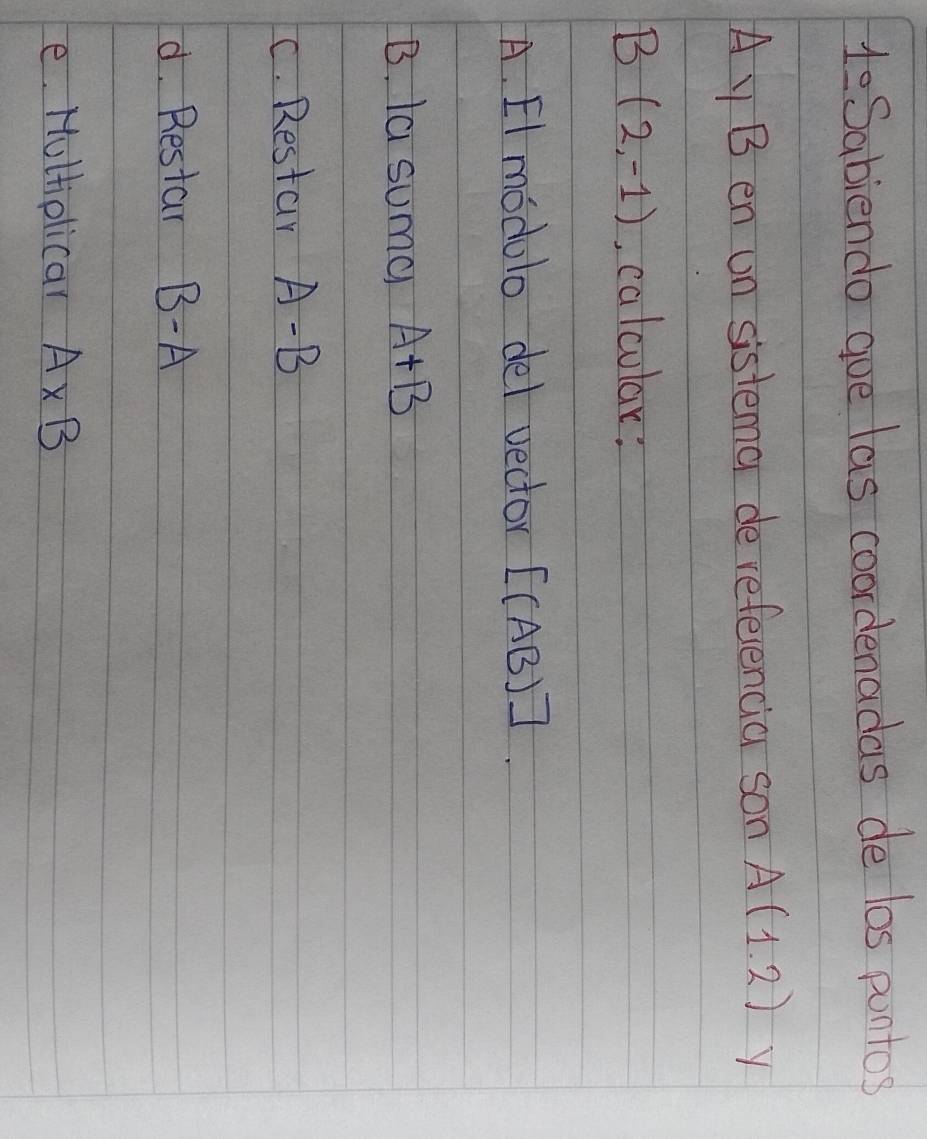 1º Sabiendo que las coordenadas de los puntos
A y B en un sistema de referencia son A (1.2) y
B (2,-1), calcular:
A. El módulo del vector [(AB)].
B. la suma A+B
C. Restar A-B
d. Restar B-A
e. Multiplicar AxB